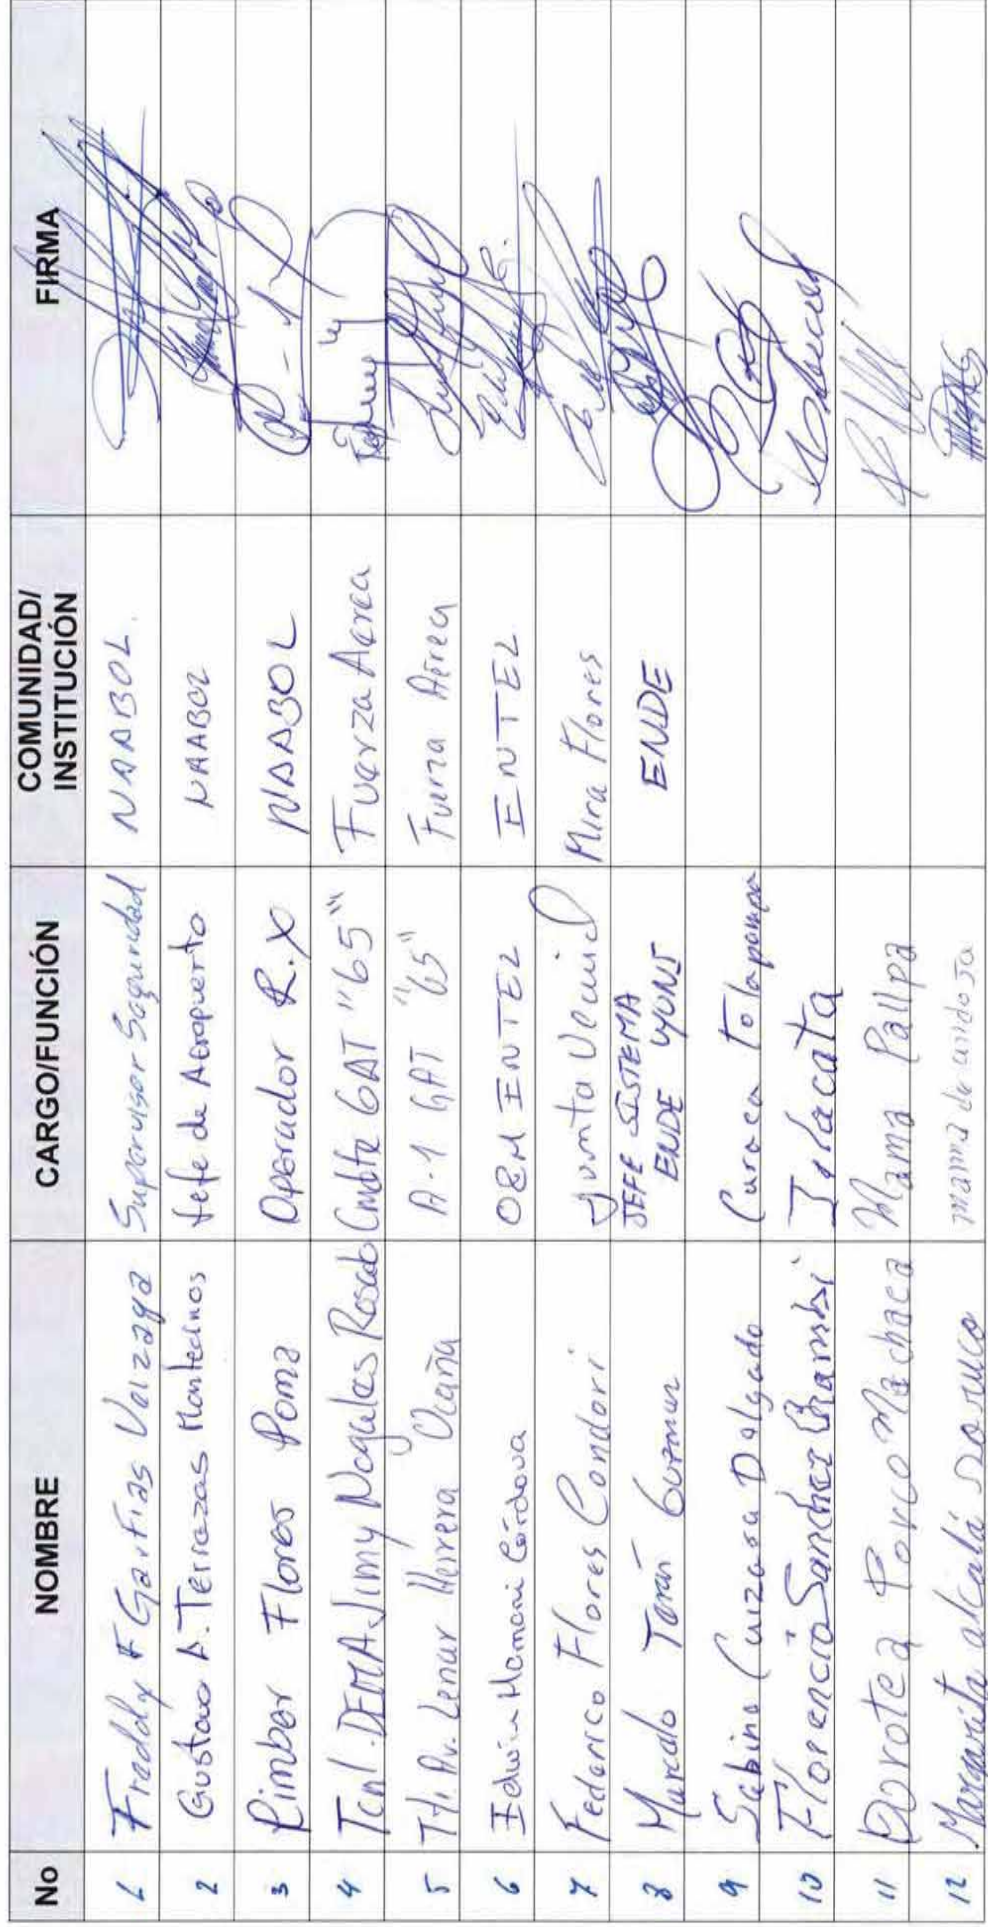 No NOMBRE CARGO/FUNCIÓN COMUNIDAD/ INSTITUCIÓN FIRMA
1 Freddy F Garfias Verzaga Supervisor Seguridad NAABOL.
2 Gustavo A. Terrazas Montecinos Jefe de Aeropuerto NAABOL
3 Limber Flores Poma Operador R.X NAABOL
4 Tcnl. DEMA. Jimmy Nogales Rosado Cmdte GAT "65" Fuerza Aerea
5 Tte. Av. Lenar Herrera Ocaña A-1 GAT "65" Fuerza Aérea
6 Edwin Mamani Córdova O&M ENTEL ENTEL
7 Federico Flores Condori Junta Vecinal Mira Flores
8 Marcelo Terán Guzman JEFE SISTEMA ENDE UYUNI ENDE
9 Sabino Curaca Tolapampa
10 Florencio Sanchez Jilacata
11 Dorotea Porco Machaca Mama Pallpa
12 Margarita alcalá